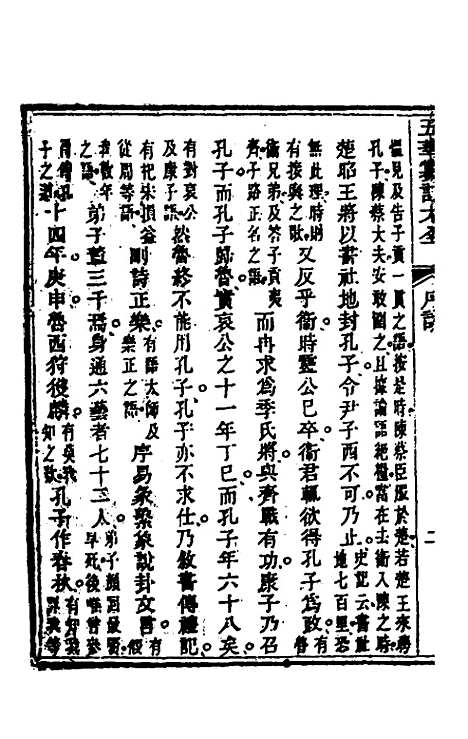 五華纂訂大全 序說 二
慍見及告子貢一貫之語按是時陳蔡臣服於楚若楚王來聘
孔子陳蔡大夫安敢圍之且據論語絕糧當在去衛入陳之時
楚昭王將以書社地封孔子令尹子西不可乃止史記云書社地七百里恐
無此理時則有接輿之歌又反乎衛時靈公已卒衛君輒欲得孔子為政有魯
衛兄弟及答子貢夷齊子路正名之語而冉求為季氏將與齊戰有功康子乃召
孔子而孔子歸魯實哀公之十一年丁巳而孔子年六十八矣
有對哀公及康子語然魯終不能用孔子孔子亦不求仕乃敘書傳禮記
有杞宋損益從周等語刪詩正樂有語大師及樂正之語序易彖繫象說卦文言有假
我數年之語弟子蓋三千焉身通六藝者七十二人弟子顏回最賢早死後唯曾參
得傳孔子之道十四年庚申魯西狩獲麟有莫我知之歎孔子作春秋有知我罪我等